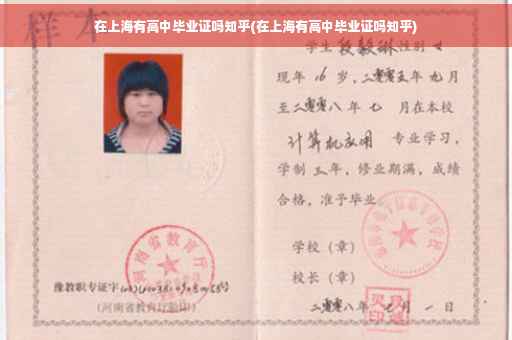 在上海有高中毕业证吗知乎(在上海有高中毕业证吗知乎)
样本
学生段毅琳性别女
现年16岁,二零零五年九月
至二零零八年七月在本校
计算机应用 专业学习,
学制三年,修业期满,成绩
合格,准予毕业。
学校(章)
校长(章)
二零零八年七月一日
河南省教育厅
豫教职专证字
(河南省教育厅验印)